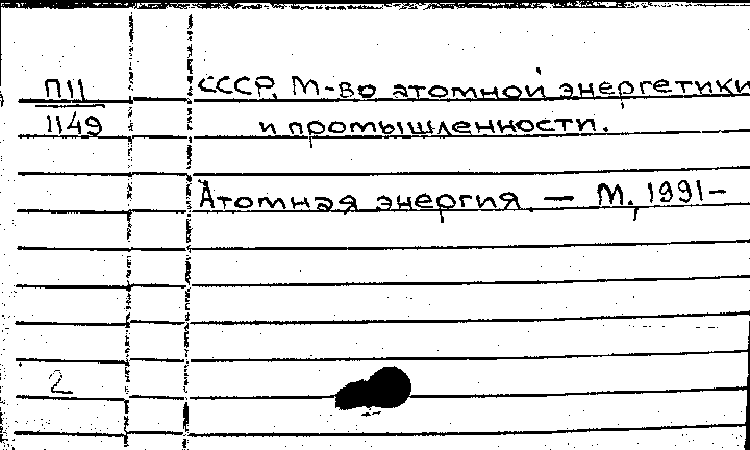 П11 СССР. М-во атомной энергетики
1149 и промышленности.
Атомная энергия. — М., 1991—
2